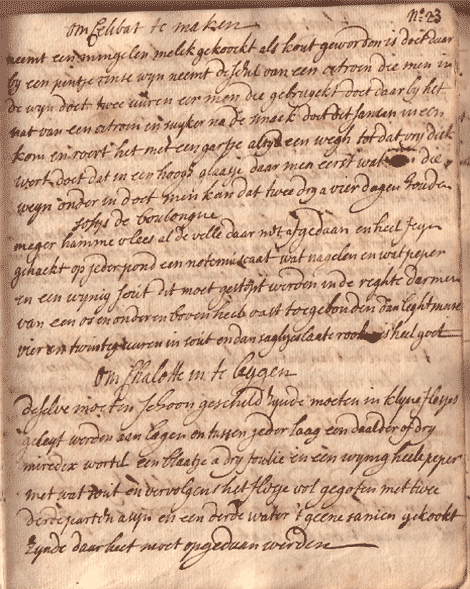 No 23
om Celibat te maken
neemt een mingelen melck gekoockt als kout geworden is doet daar
by een pintje rinse wyn neemt de schil van een citroen die men in
de wyn doet twee uuren eer men die gebruyckt doet daar by het
nat van een citroen en suyker na de smaeck doet dit samen in een
kom en roert het met een garfje altyt een wegh tot dat vry dick
wort doet dat in een hooge glaasje daar men eerst wat die
wegn onder in doet men kan dat twee dry a vier dagen houden
sosys de boulongne
mager hamme vlees al de velle daar net afgedaan en heel feyn
gehackt op jeder pond een notemuscaat wat nagelen en wat peper
en een wynig sout dit moet gestopt werden in de reghte darmen
van een os en onder en boven heel vast toegebonden dan leght men se
vier en twintig uuren in sout en dan saghjes laate rooken is heel goet
om Chalotten in te leggen
deselve moeten schoon geschild zynde moeten in klyne flesjes
geleyt werden aan lagen en tussen jeder laag een daalder of dry
miredex wortel een blaatje a dry foulie en een wynig heele peper
met wat sout en vervolgens het flesje vol gegoten met twee
derde parten asyn en een derde water 't geene samen gekookt
zynde daar heet moet opgedaan werden